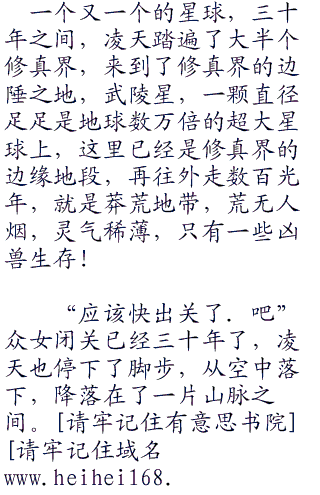 一个又一个的星球，三十
年之间，凌天踏遍了大半个
修真界，来到了修真界的边
陲之地，武陵星，一颗直径
足足是地球数万倍的超大星
球上，这里已经是修真界的
边缘地段，再往外走数百光
年，就是莽荒地带，荒无人
烟，灵气稀薄，只有一些凶
兽生存！
“应该快出关了．吧”
众女闭关已经三十年了，凌
天也停下了脚步，从空中落
下，降落在了一片山脉之
间。[请牢记住有意思书院]
[请牢记住域名
www.heihei168.